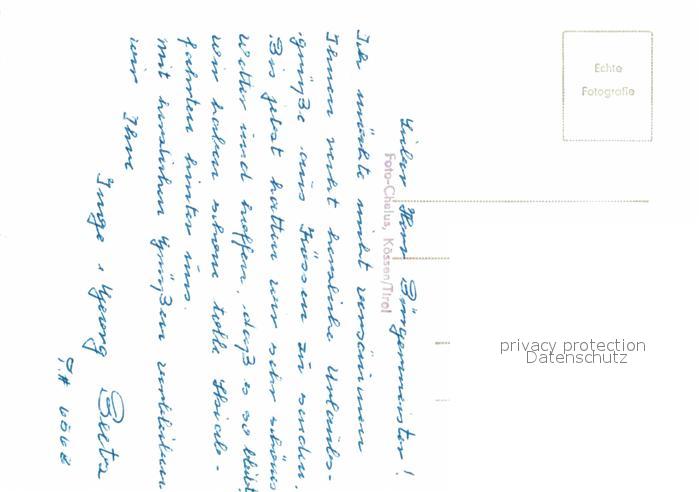 Lieber Herr Bürgermeister!
Ich möchte nicht versäumen
Ihnen recht herzliche Urlaubs-
grüße aus Kössen zu senden.
Bis jetzt hatten wir sehr schönes
Wetter und hoffen, daß es so bleibt
wir haben schon tolle
fahrten hinter uns.
Mit herzlichen Grüßen verbleiben
wir Ihre
Inge + Georg
Foto-Chalus, Kössen/Tirol
Echte
Fotografie
privacy protection
Datenschutz